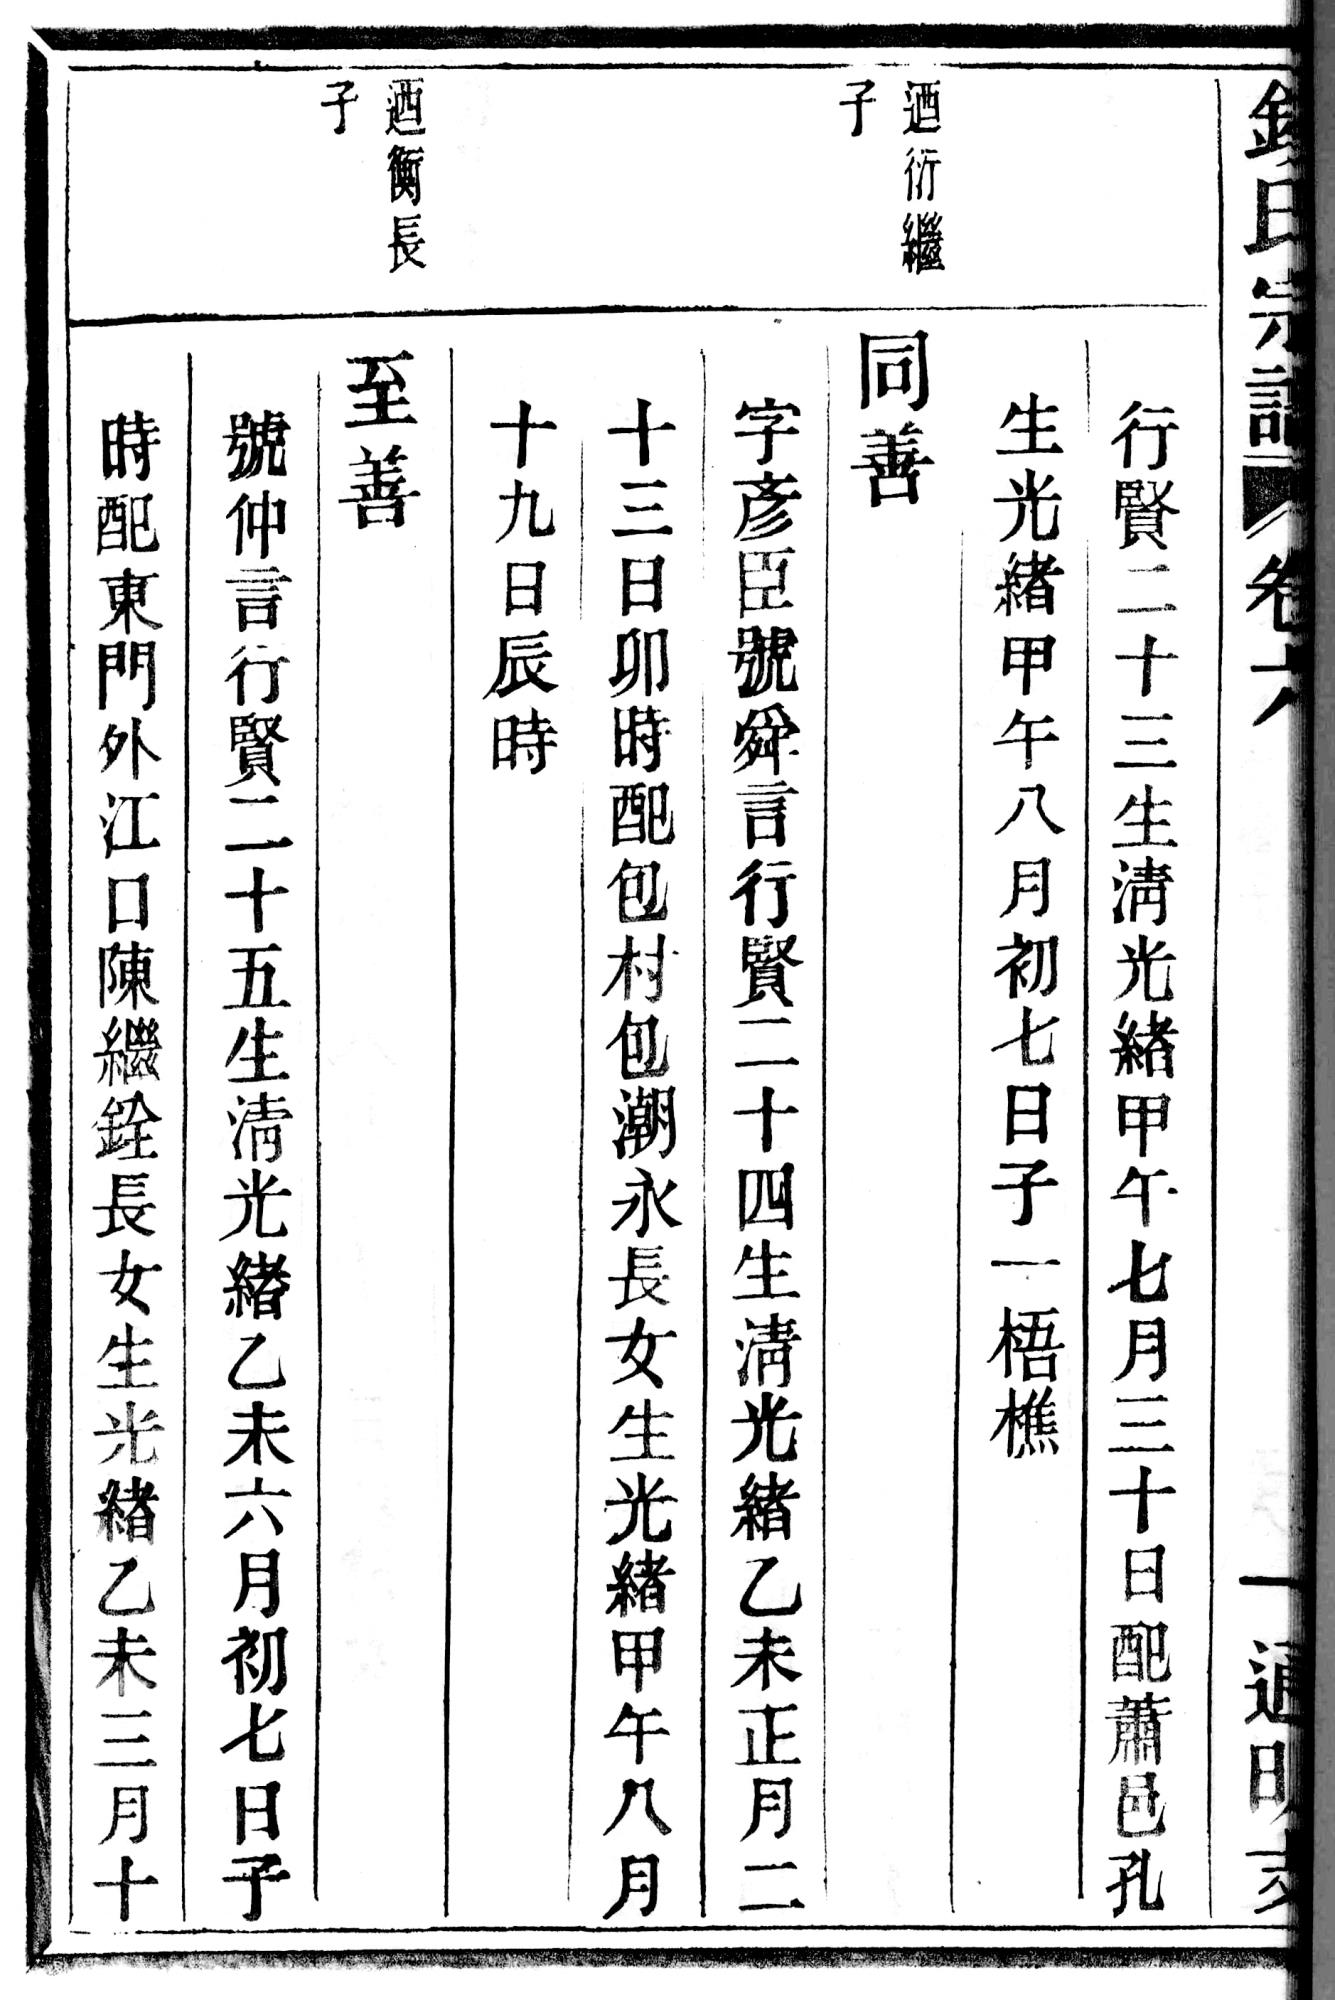 氏宗譜 卷六 一 通明支
行賢二十三生淸光緖甲午七月三十日配蕭邑孔
生光緖甲午八月初七日子一梧樵
迺衍繼
子
同善
字彥臣號舜言行賢二十四生淸光緖乙未正月二
十三日卯時配包村包潮永長女生光緖甲午八月
十九日辰時
迺衡長
子
至善
號仲言行賢二十五生淸光緖乙未六月初七日子
時配東門外江口陳繼銓長女生光緖乙未三月十